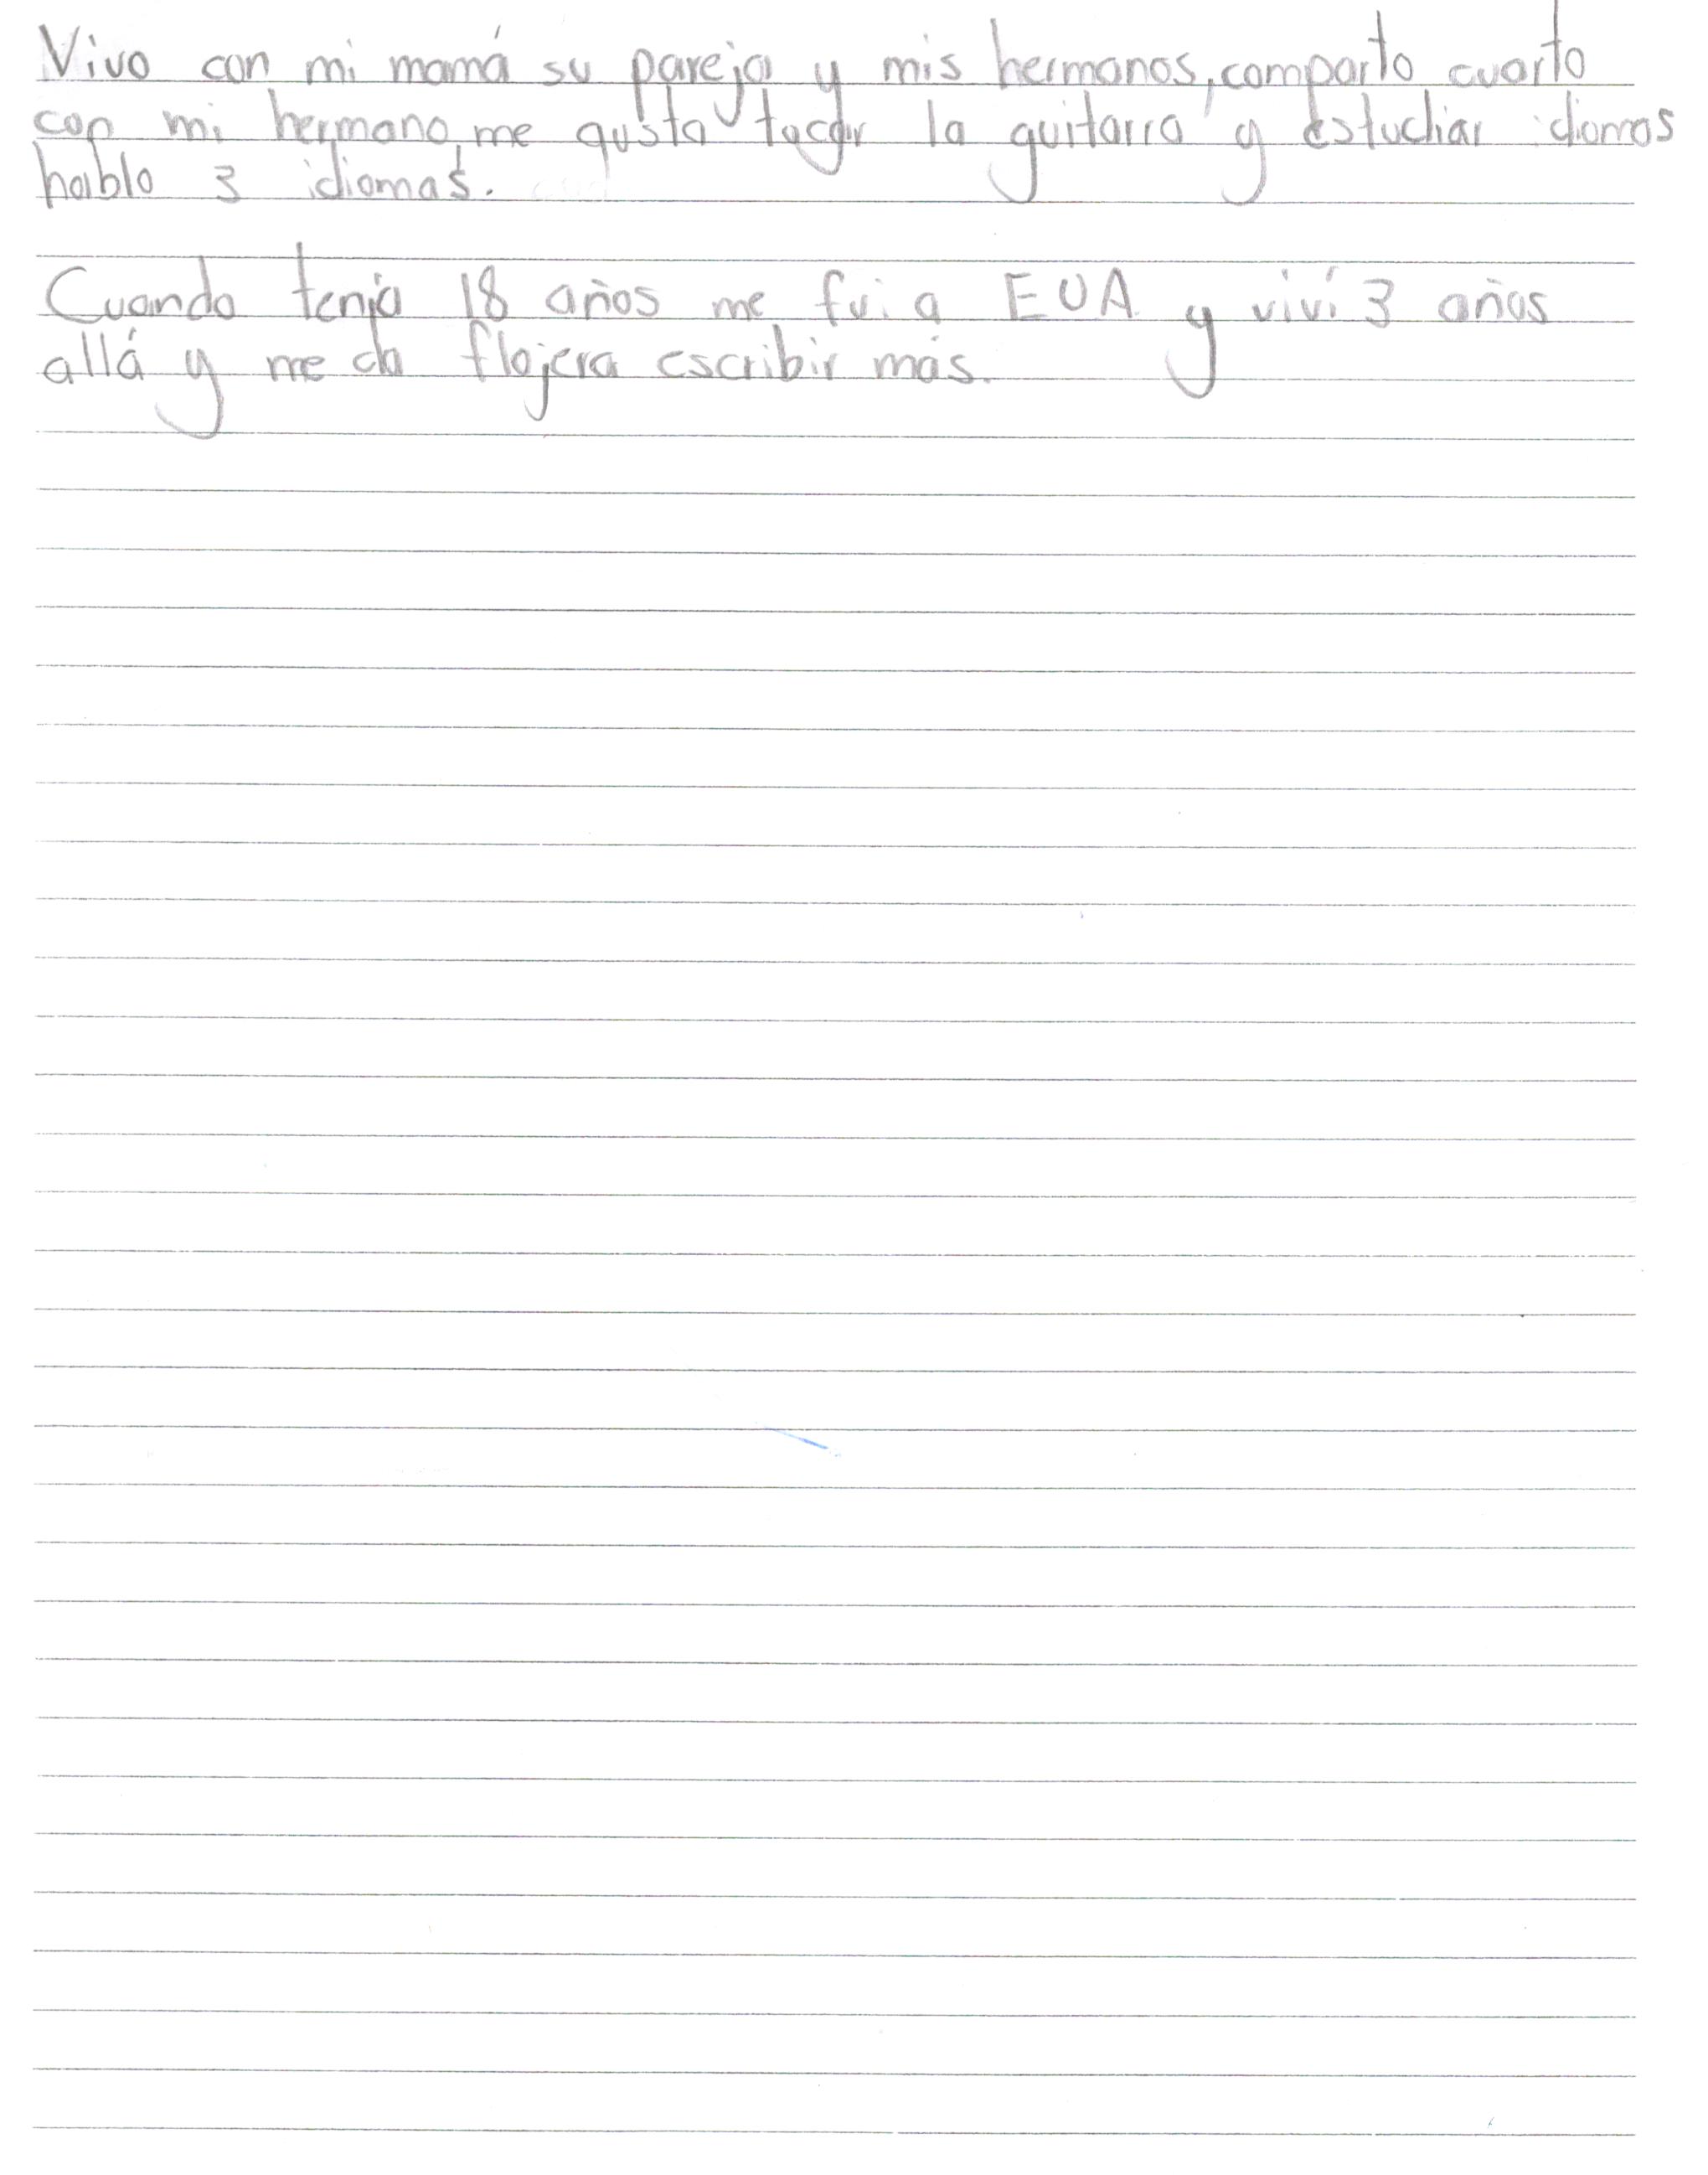 Vivo con mi mamá su pareja y mis hermanos, comparto cuarto
con mi hermano, me gusta tocar la guitarra y estudiar idiomas
hablo 3 idiomas.
Cuando tenia 18 años me fui a EUA y viví 3 años
allá y me da flojera escribir más.